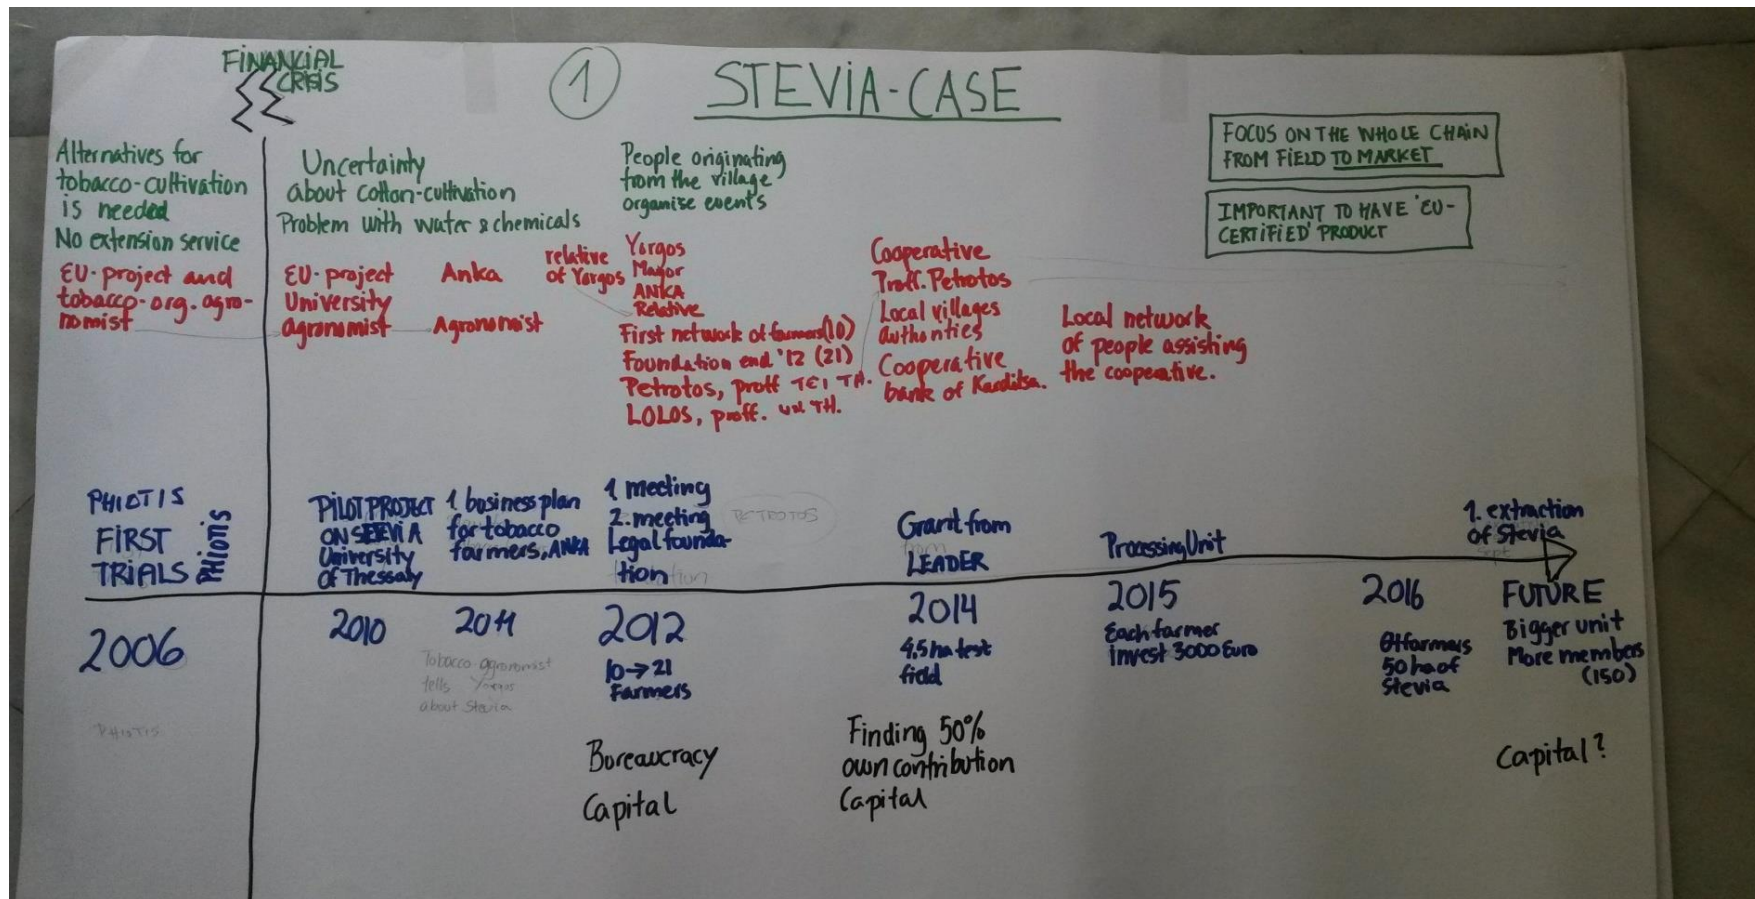 FINANCIAL
CRISIS
1
STEVIA-CASE
FOCUS ON THE WHOLE CHAIN
FROM FIELD TO MARKET
IMPORTANT TO HAVE 'EU-
CERTIFIED' PRODUCT
Alternatives for
tobacco-cultivation
is needed
No extension service
EU-project and
tobacco-org. agro-
nomist
Uncertainty
about cotton-cultivation
Problem with water & chemicals
EU-project
University
agronomist
Anka
Agronomist
relative
of Yorgos
People originating
from the village
organise events
Yorgos
Mayor
ANKA
Relative
First network of farmers (10)
Foundation end '12 (21)
Petrotos, proff TEI TH.
LOLOS, proff. uni TH.
Cooperative
Proff. Petrotos
Local villages
authorities
Cooperative
bank of Karditsa.
Local network
of people assisting
the cooperative.
PHIOTIS
FIRST
TRIALS
PHIOTIS
PILOT PROJECT
ON STEVIA
University
of Thessaly
1 business plan
for tobacco
farmers, ANKA
1 meeting
2. meeting
Legal founda-
tion
PETROTOS
Grant from
LEADER
Processing Unit
1. extraction
of Stevia
Sept
2006
2010
2011
2012
2014
2015
2016
FUTURE
PHIOTIS
Tobacco-agronomist
tells Yorgos
about Stevia
10→21
Farmers
4,5 ha test
field
Each farmer
invest 3000 Euro
farmers
50 ha of
Stevia
Bigger unit
More members
(150)
Bureaucracy
Capital
Finding 50%
own contribution
Capital
Capital?